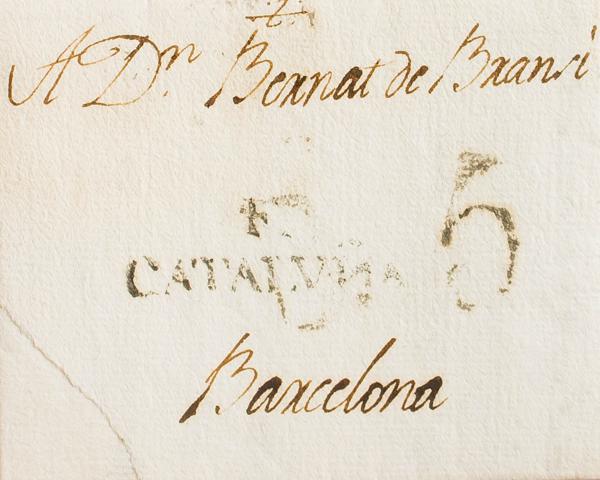 A Dn. Bernat de Bransi
5
CATALVÑA
Barcelona